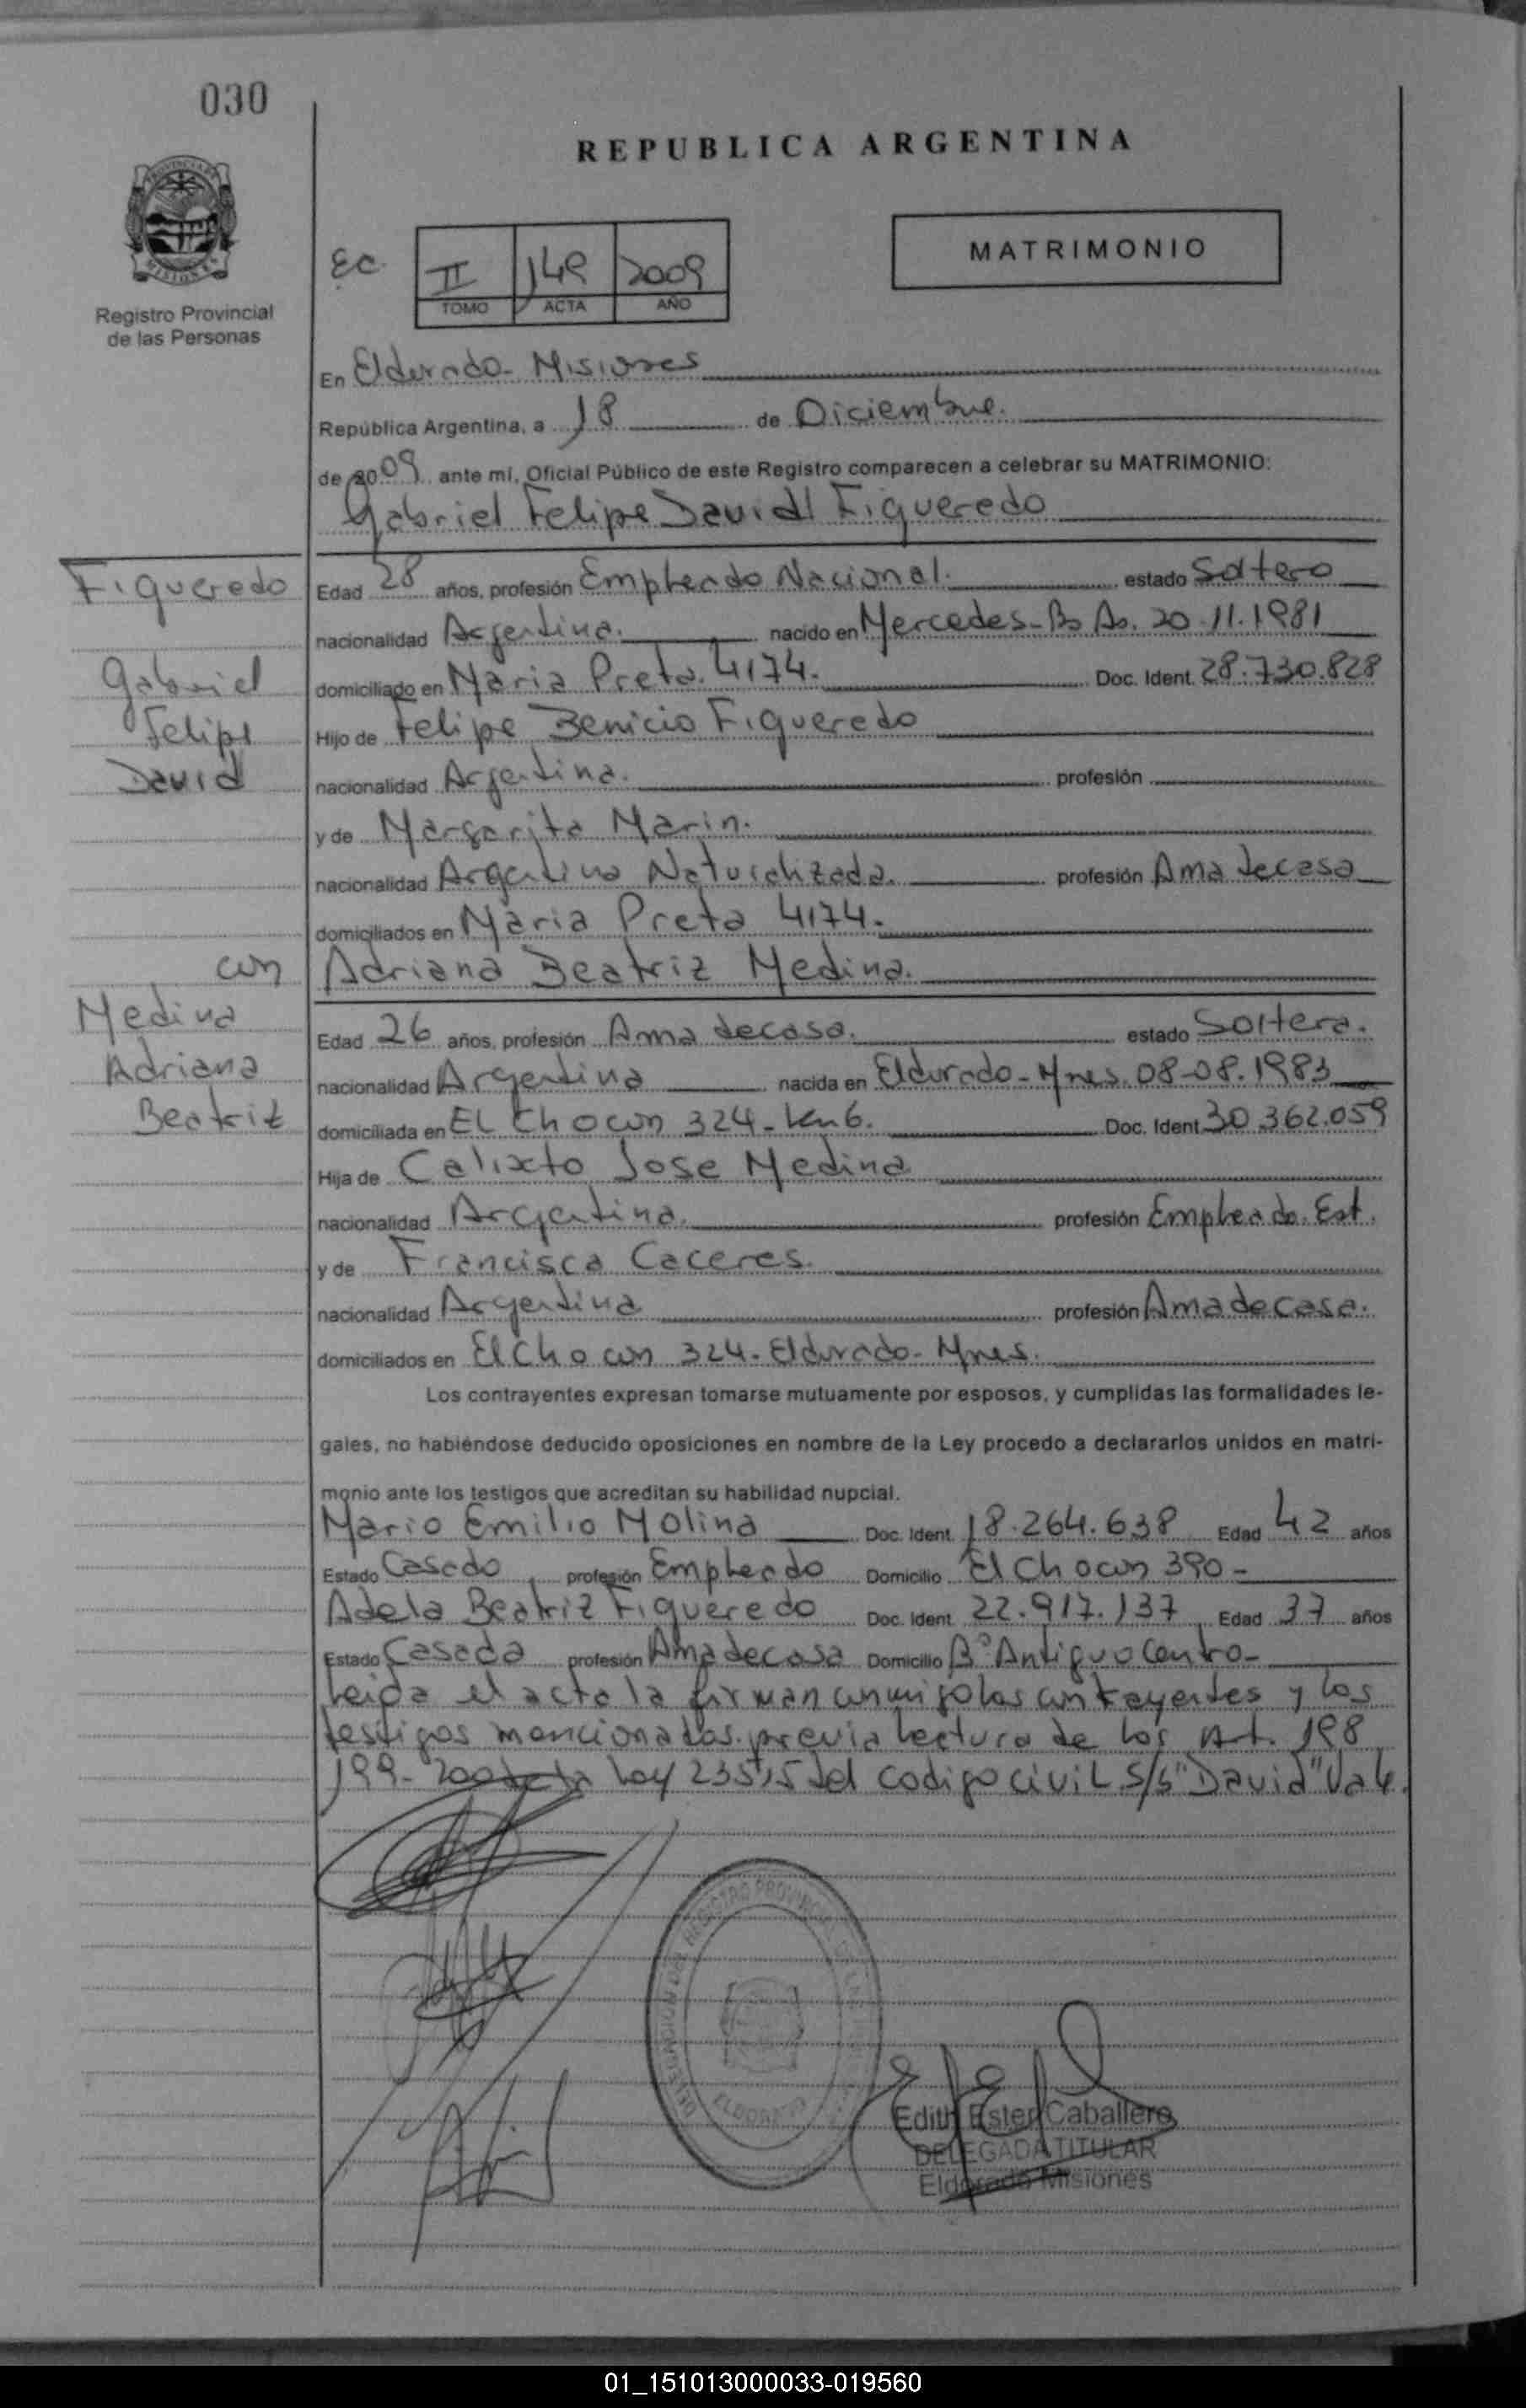 030
REPUBLICA ARGENTINA
PROVINCIA DE
MISIONES
Registro Provincial
de las Personas
EC
II 149 2009
TOMO ACTA AÑO
MATRIMONIO
En Eldorado - Misiones
República Argentina, a 18 de Diciembre.
de 2009 ante mí, Oficial Público de este Registro comparecen a celebrar su MATRIMONIO:
Gabriel Felipe David Figueredo
Figueredo
Gabriel
Felipe
David
Edad 28 años, profesión Empleado Nacional. estado Soltero
nacionalidad Argentina. nacido en Mercedes - Bs As. 20.11.1981
domiciliado en Maria Preta. 4174. Doc. Ident. 28.730.828
Hijo de Felipe Benicio Figueredo
nacionalidad Argentina. profesión
y de Margarita Marin.
nacionalidad Argentina Naturalizada. profesión Ama de casa
domiciliados en Maria Preta 4174.
con
Medina
Adriana
Beatriz
Adriana Beatriz Medina.
Edad 26 años, profesión Ama de casa. estado Soltera.
nacionalidad Argentina nacida en Eldorado - Mnes. 08-08.1983
domiciliada en EL Chocon 324 - Km 6. Doc. Ident. 30.362.059
Hija de Calixto Jose Medina
nacionalidad Argentina. profesión Empleado. Est.
y de Francisca Caceres.
nacionalidad Argentina profesión Ama de casa.
domiciliados en El Chocon 324 - Eldorado - Mnes.
Los contrayentes expresan tomarse mutuamente por esposos, y cumplidas las formalidades le-
gales, no habiéndose deducido oposiciones en nombre de la Ley procedo a declararlos unidos en matri-
monio ante los testigos que acreditan su habilidad nupcial.
Mario Emilio Molina Doc. Ident. 18.264.638 Edad 42 años
Estado Casado profesión Empleado Domicilio El Chocon 390 -
Adela Beatriz Figueredo Doc. Ident. 22.917.137 Edad 37 años
Estado Casada profesión Ama de casa Domicilio Bº Antiguo Centro -
Leida el acta la firman conmigo los contrayentes y los
testigos mencionados. previa lectura de los Art. 198
199 - 200 de la Ley 23515 del codigo civil. S/S "David" Vale.
REGISTRO PROVINCIAL
ELDORADO
Edith Ester Caballero
DELEGADA TITULAR
Eldorado Misiones
01_151013000033-019560